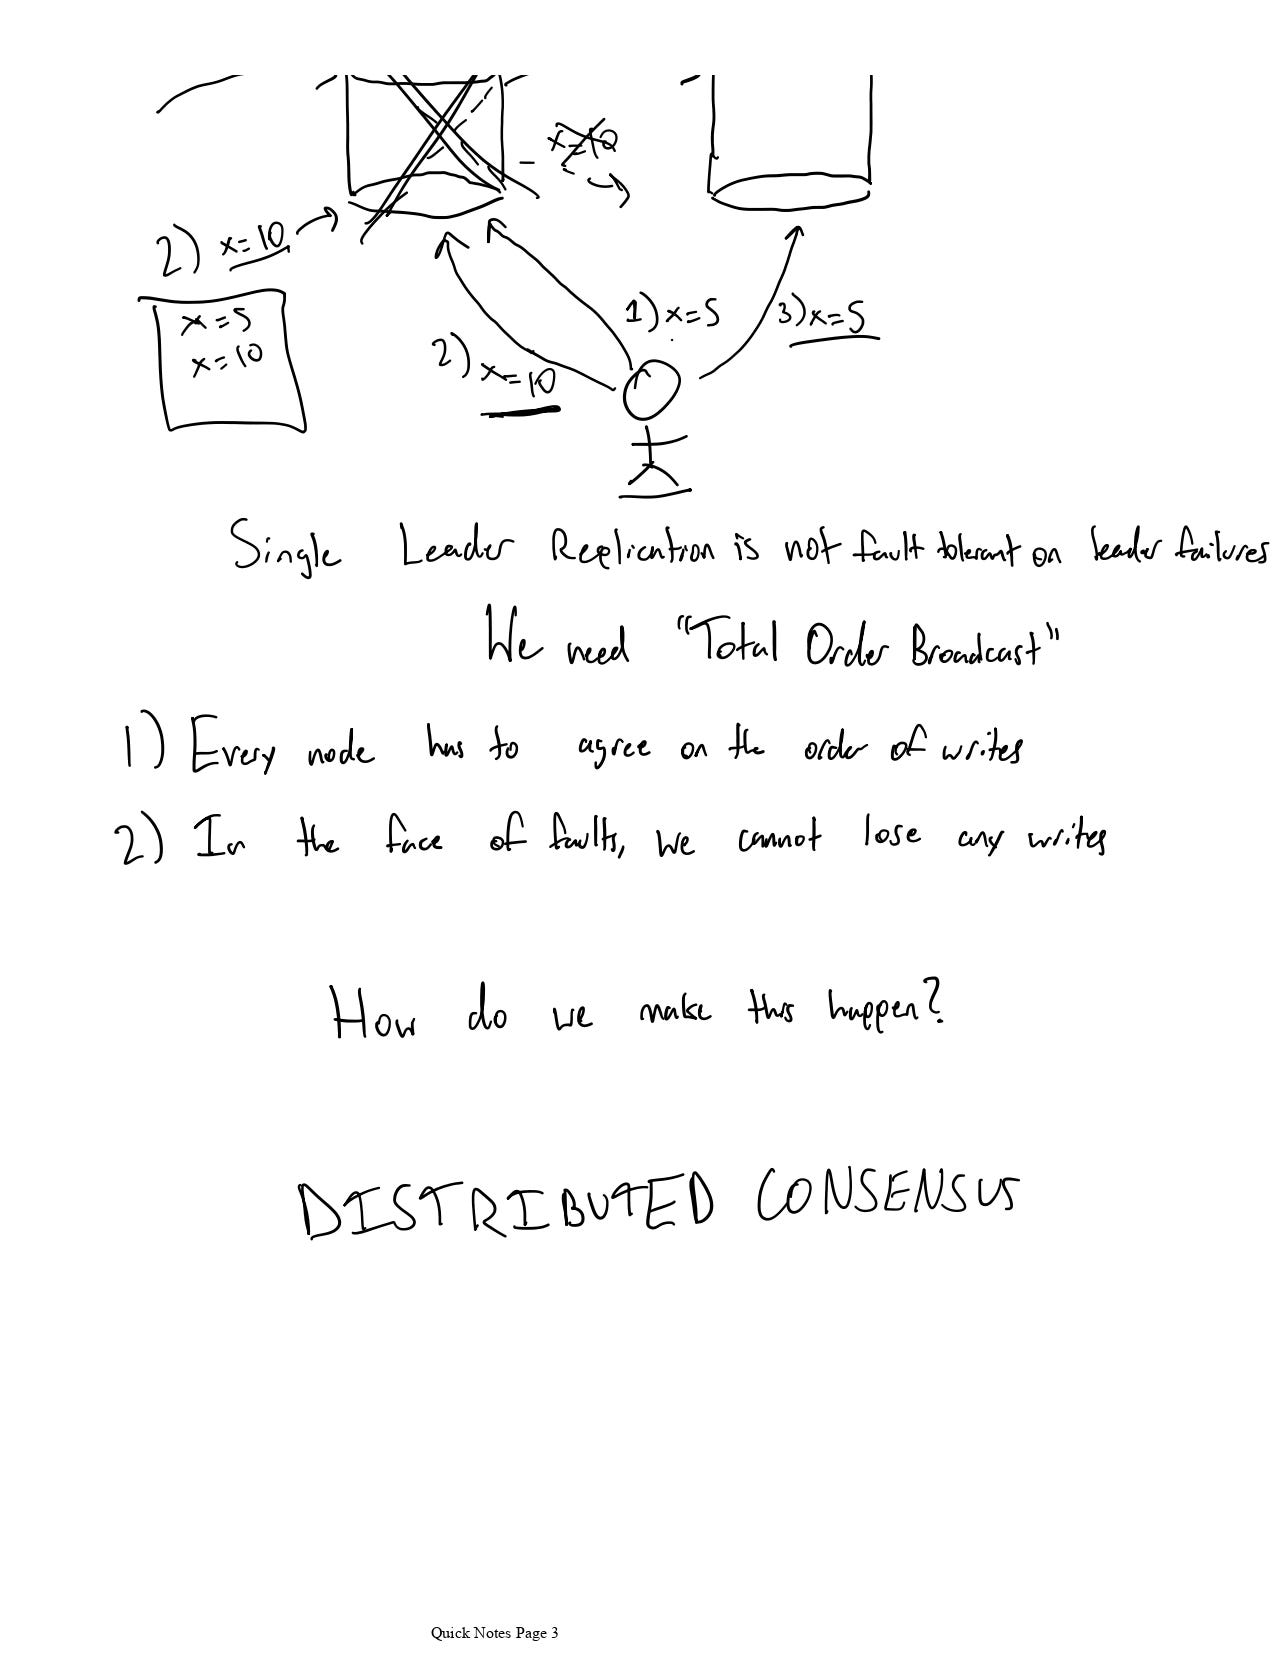 x=10
2) x=10
x=5
x=10
1) x=5
3) x=5
2) x=10
Single Leader Replication is not fault tolerant on leader failures
We need "Total Order Broadcast"
1) Every node has to agree on the order of writes
2) In the face of faults, we cannot lose any writes
How do we make this happen?
DISTRIBUTED CONSENSUS
Quick Notes Page 3